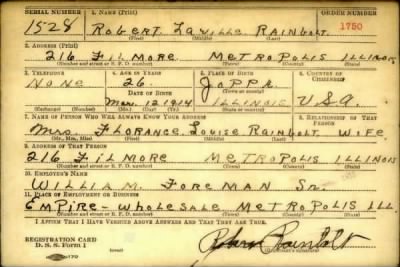 SERIAL NUMBER 1. NAME (Print) ORDER NUMBER
1528 ROBERT LAVILLE RAINBOLT 1750
(First) (Middle) (Last)
2. ADDRESS (Print)
216 FILMORE METROPOLIS ILLINOIS
(Number and street or R. F. D. number) (Town) (County) (State)
3. TELEPHONE 4. AGE IN YEARS 5. PLACE OF BIRTH 6. COUNTRY OF CITIZENSHIP
NONE 26 JOPPA
DATE OF BIRTH (Town or county)
Mar. 12 1914 ILLINOIS U.S.A.
(Mo.) (Day) (Yr.) (State or country)
7. NAME OF PERSON WHO WILL ALWAYS KNOW YOUR ADDRESS 8. RELATIONSHIP OF THAT PERSON
Mrs. FLORANCE LOUISE RAINBOLT WIFE
(Mr., Mrs., Miss) (First) (Middle) (Last)
9. ADDRESS OF THAT PERSON
216 FILMORE METROPOLIS ILLINOIS
(Number and street or R. F. D. number) (Town) (County) (State)
10. EMPLOYER'S NAME
WILLIAM FOREMAN Sr.
11. PLACE OF EMPLOYMENT OR BUSINESS
EMPIRE-WHOLESALE METROPOLIS ILL
(Number and street or R. F. D. number) (Town) (County) (State)
I AFFIRM THAT I HAVE VERIFIED ABOVE ANSWERS AND THAT THEY ARE TRUE.
REGISTRATION CARD
D. S. S. Form 1 Robert Rainbolt